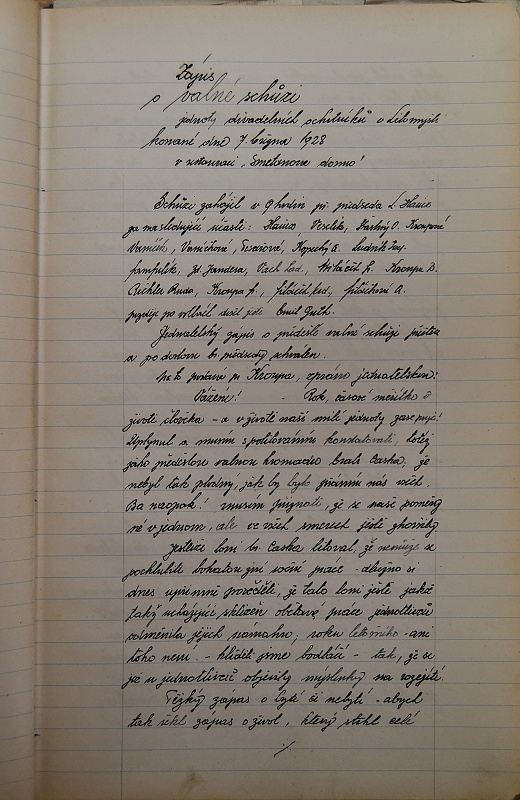 Zápis
o valné schůzi
jednoty divadelních ochotníků v Litomyšli
konané dne 7. března 1928
v restauraci „Smetanova domu"
Schůzi zahájil v 9 hodin př. předseda L. Hanus
za následující účasti: Hanus, Veselík, Šťastný O. Kroupová
Vaníček, Vaníčková, Kopecký A. Ludvík
Jandera, Vach Lad., L. Kroupa B.
Pichler Ruda, Kroupa A., A.
později po volbách došel ještě Emil Guth.
Jednatelský zápis o předešlé valné schůzi přečten
a po doslovu br. předsedy schválen.
Na to podává př Kroupa, zprávu jednatelskou:
Vážení! - Rok, časové měřítko v
životě člověka - a v životě naší milé jednoty zase pryč!
Uplynul a musím s politováním konstatovati, totéž
jako předešlou valnou hromadu bratr Časka, že
nebyl tak plodný, jak by bylo přáním nás všech.
Ba naopak! musím přiznati, že se naše poměry
ne v jednom, ale ve všech směrech ještě zhoršily
Jestliže loni br. Časka litoval, že nemůže se
pochlubiti bohatou žní roční práce -
dnes upřímně procítiti, že tato loni ještě jakž
takž ucházející sklizeň obětavé práce jednotlivců
odměnila jejich námahu, roku letošního - ani
toho není. - klidili jsme bodláčí - tak, že se
již u jednotlivců objevily myšlenky na rozejití.
Těžký zápas o bytí či nebytí - abych
tak řekl zápas o život, který stihl celé
./.